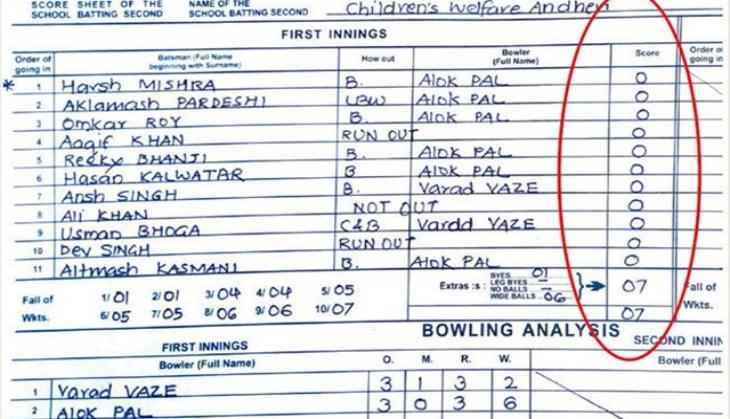 SCORE SHEET OF THE SCHOOL BATTING SECOND
NAME OF THE SCHOOL BATTING SECOND Children's Welfare Andheri
FIRST INNINGS
Order of going in Batsman (Full Name beginning with Surname) How out Bowler (Full Name) Score Order of going in
* 1 Harsh MISHRA B. Alok PAL 0
2 Aklamash PARDESHI LBW Alok PAL 0
3 Omkar ROY B. Alok PAL 0
4 Aaqif KHAN RUN OUT 0
5 Recky BHANJI B. Alok PAL 0
6 Hasan KALWATAR B Alok PAL 0
7 Ansh SINGH B. Varad VAZE 0
8 Ali KHAN NOT OUT 0
9 Usman BHOGA C&B Varad VAZE 0
10 Dev SINGH RUN OUT 0
11 Altmash KASMANI B. Alok PAL 0
Extras :s : BYES 01 LEG BYES — NO BALLS — WIDE BALLS 06 07
Fall of Wkts. 1/01 2/01 3/04 4/04 5/05
6/05 7/05 8/06 9/06 10/07
07
Fall of Wkts.
BOWLING ANALYSIS
FIRST INNINGS SECOND INNIN
Bowler (Full Name) O. M. R. W. Bowler (Full
1 Varad VAZE 3 1 3 2
2 Alok PAL 3 0 3 6